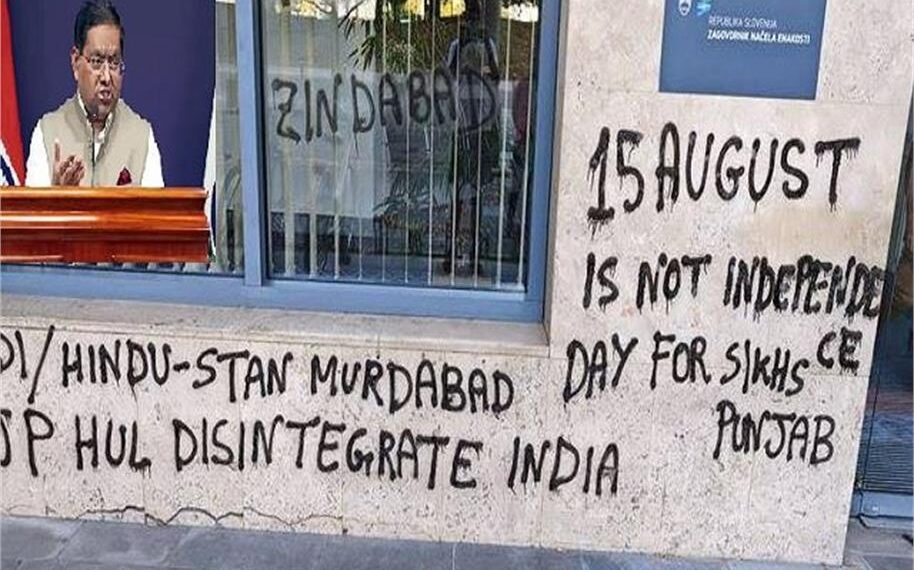 REPUBLIKA SLOVENIJA
ZAGOVORNIK NAČELA ENAKOSTI
ZINDABAD
15 AUGUST
IS NOT INDEPENDE
CE
DAY FOR SIKHS
PUNJAB
DI/HINDU-STAN MURDABAD
JP HUL DISINTEGRATE INDIA